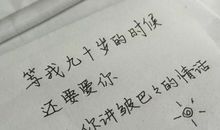 等我九十岁的时候
还要爱你
你讲结巴巴的情话